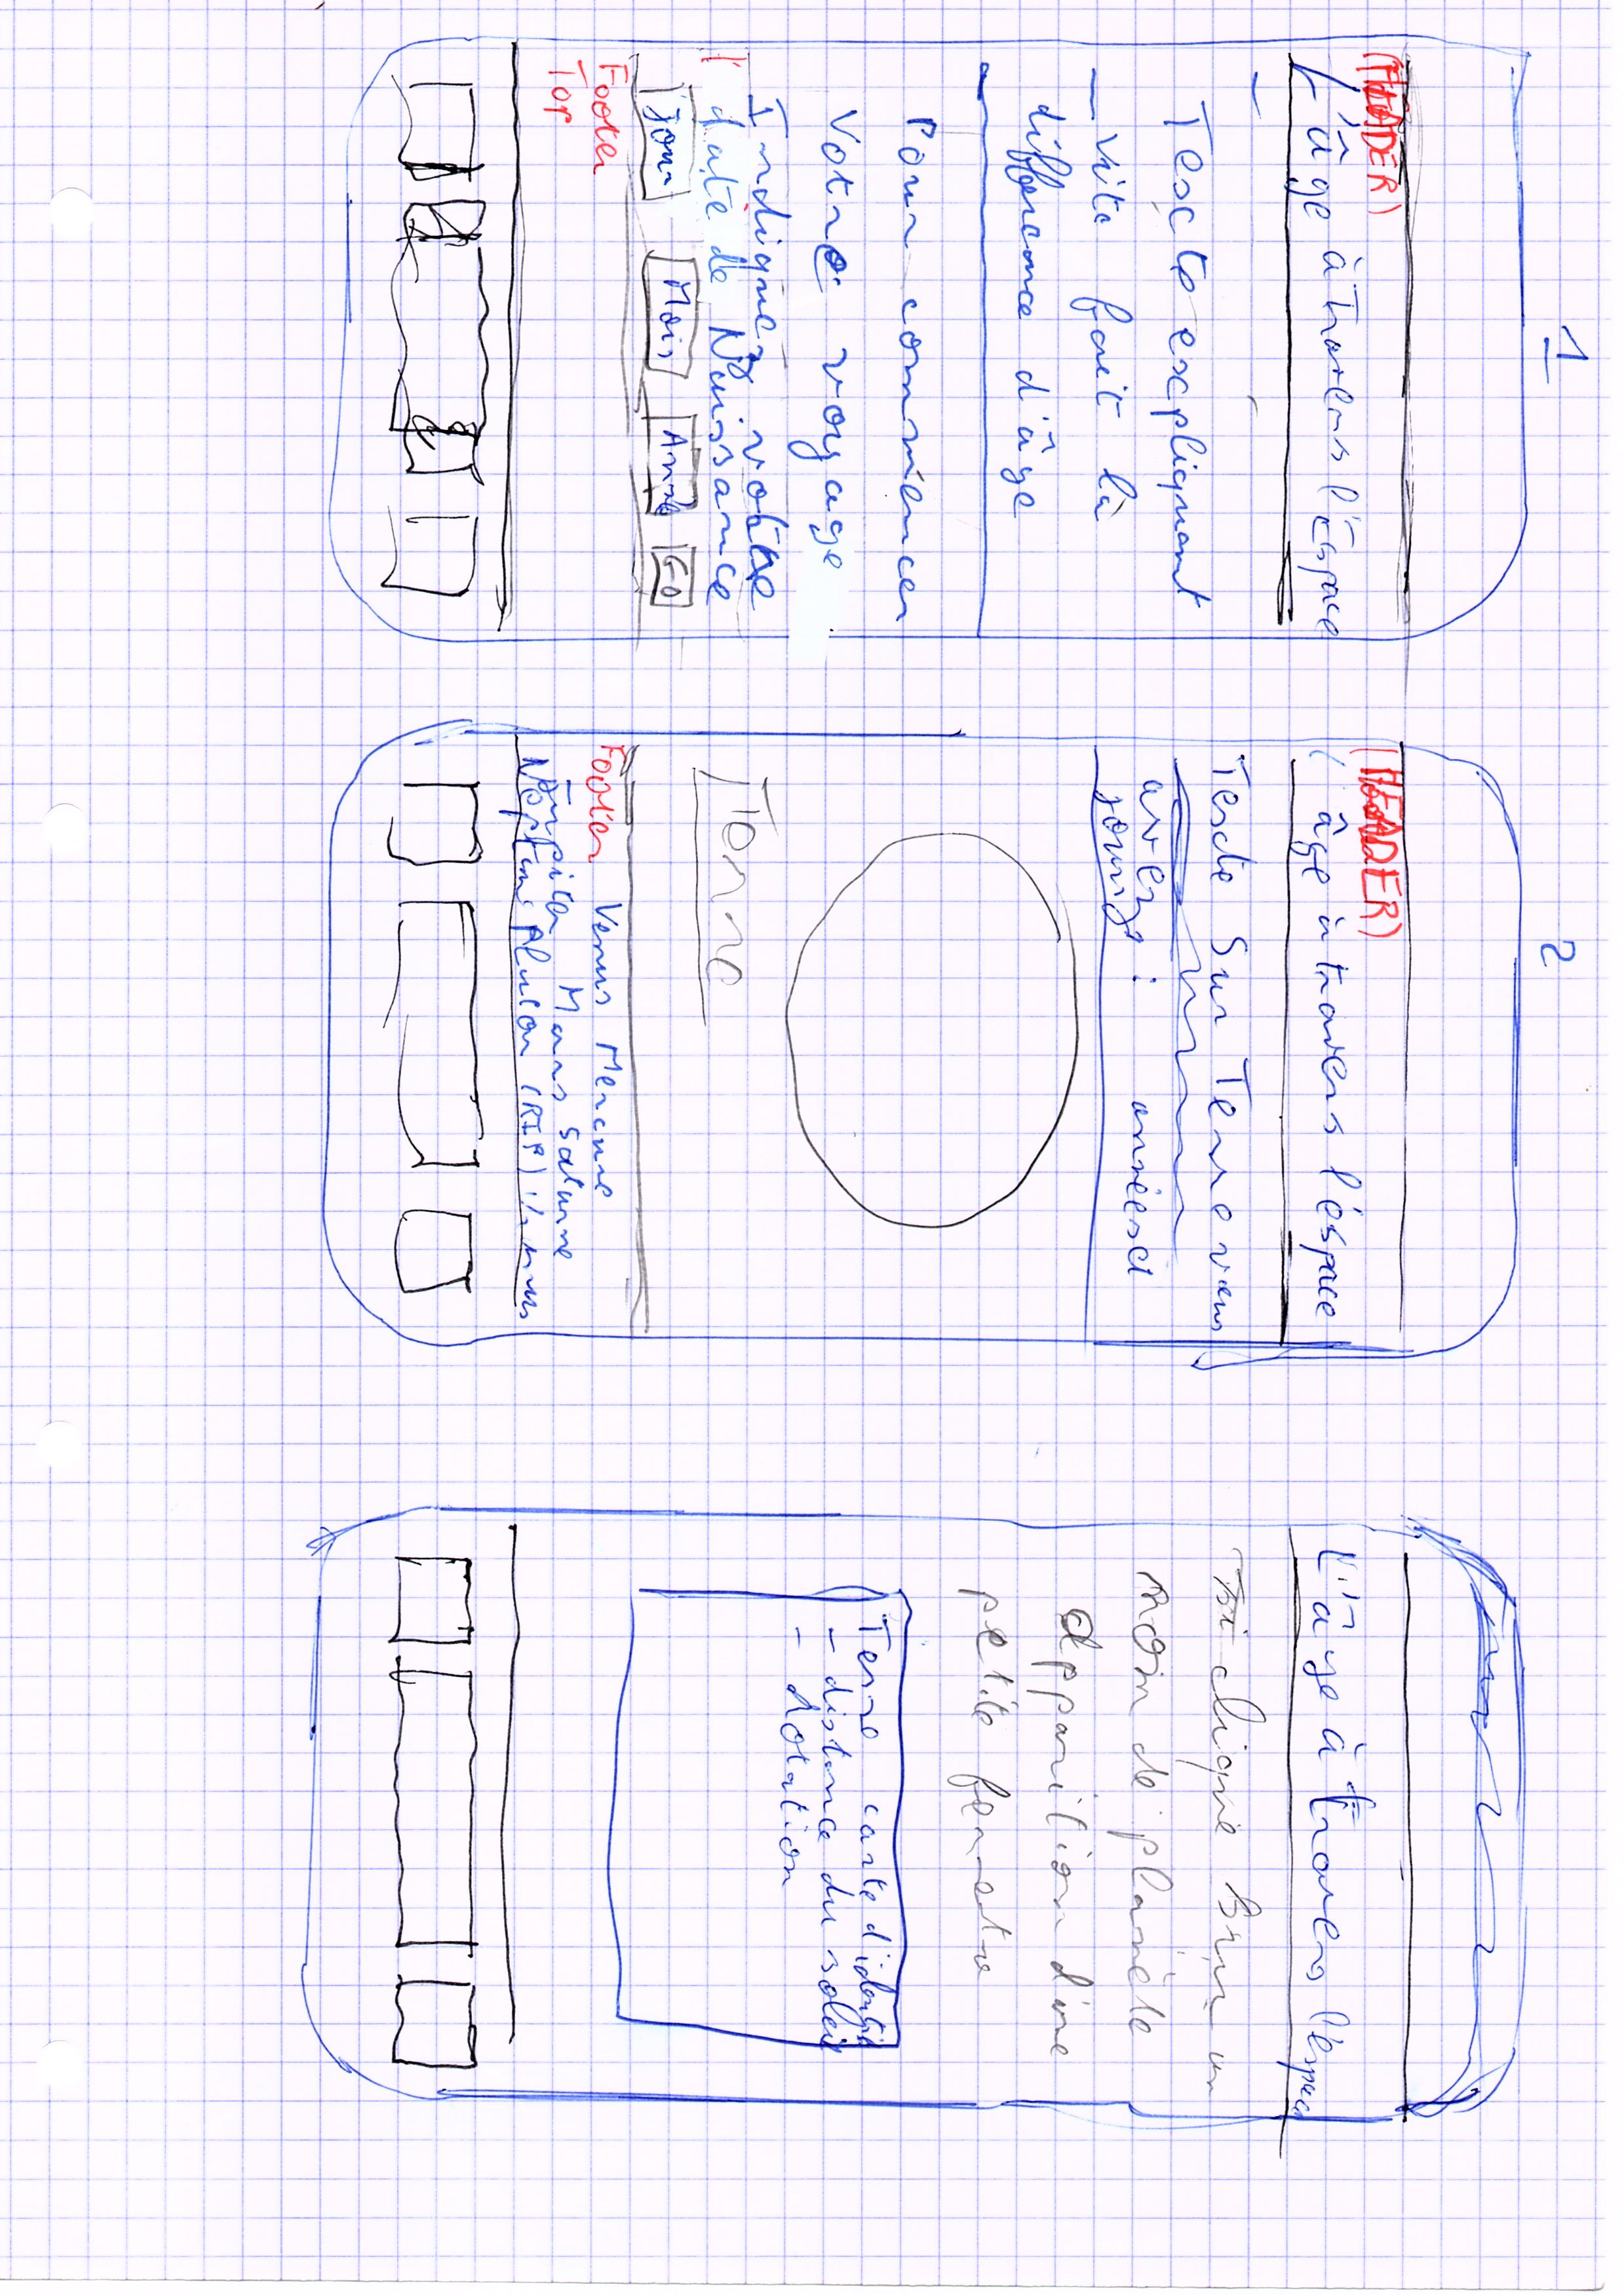 1
(HEADER)
L'âge à Travers l'Espace
Texte expliquant
- Vite fait là
différence d'âge
Pour commencer
Votre voyage
Indiquez votre
date de Naissance
Jour Mois Année GO
Footer
Top
2
(HEADER)
L'âge à travers l'éspace
Texte Sur Terre vous
avez : années et
jours
Terre
Footer Venus Mercure
Jupiter Mars Saturne
Neptune Pluton (RIP)
L'âge à travers l'éspace
Si clique sur un
nom de planète
apparition d'une
petite fenetre
Terre carte d'identité
- distance du soleil
- Rotation